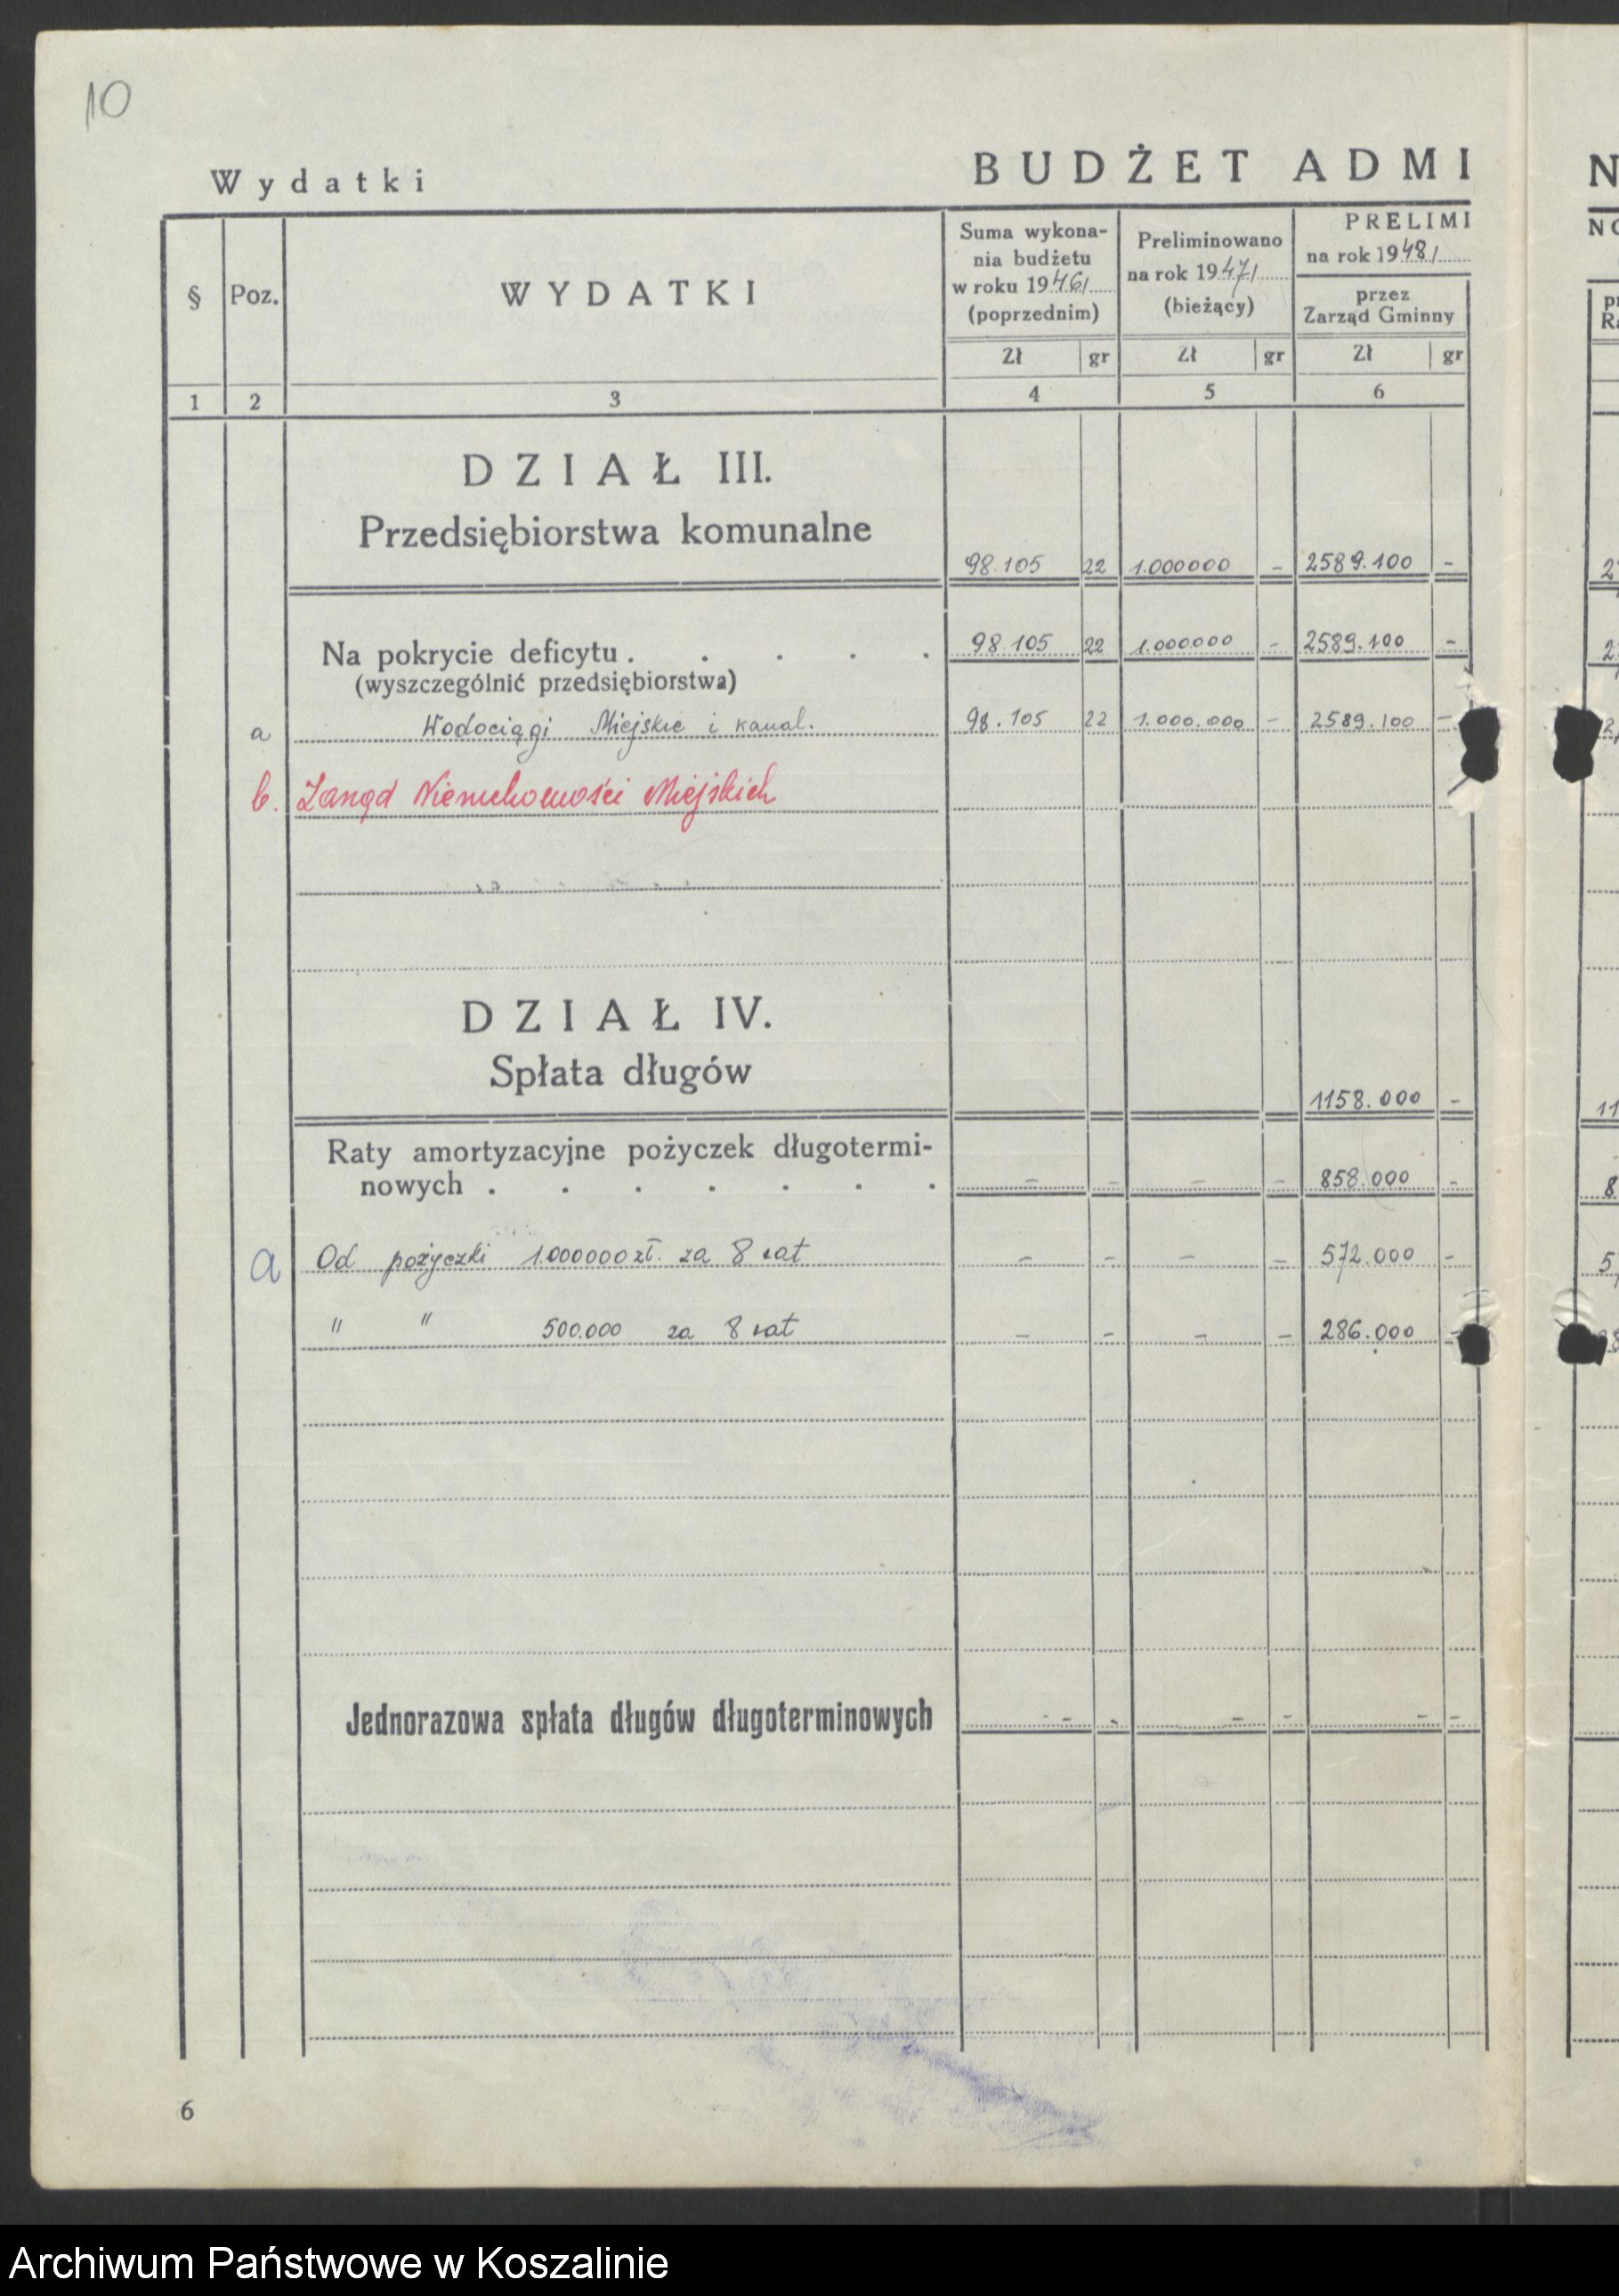 10
Wydatki
BUDŻET ADMI
§
Poz.
WYDATKI
Suma wykona-
nia budżetu
w roku 1946/
(poprzednim)
Preliminowano
na rok 1947/
(bieżący)
PRELIMI
na rok 1948/
przez
Zarząd Gminny
Zł gr Zł gr Zł gr
1 2 3 4 5 6
DZIAŁ III.
Przedsiębiorstwa komunalne
98.105 22 1.000000 - 2589.100 -
Na pokrycie deficytu . . . . . 98.105 22 1.000.000 - 2589.100 -
(wyszczególnić przedsiębiorstwa)
a Wodociągi Miejskie i kanal. 98.105 22 1.000.000 - 2589.100 -
b. Zarząd Nieruchomości Miejskich
DZIAŁ IV.
Spłata długów
1158.000 -
Raty amortyzacyjne pożyczek długotermi-
nowych . . . . . . . - - - - 858.000 -
a Od pożyczki 1.000000 zł. za 8 rat - - - - 572.000 -
" " 500.000 za 8 rat - - - - 286.000 -
Jednorazowa spłata długów długoterminowych - - - - - -
6
Archiwum Państwowe w Koszalinie